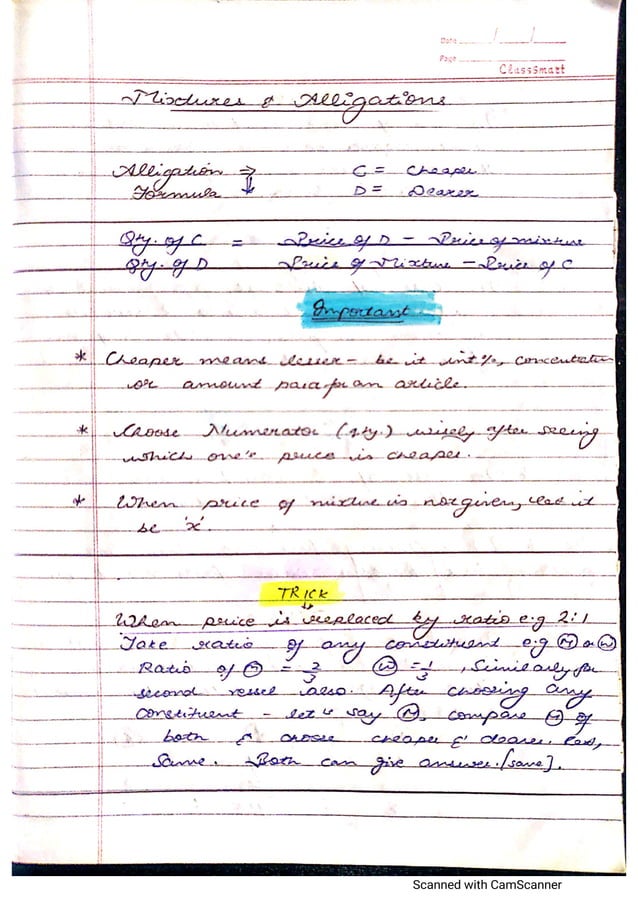 Date / /
Page
ClassSmart
Mixtures & Alligations
Alligation ⇒ C = Cheaper
Formula ⇓ D = Dearer
Qty. of C = Price of D - Price of mixture
Qty. of D Price of Mixture - Price of C
Important
* Cheaper means lesser - be it int%, concentration
or amount paid for an article.
* Choose Numerator (qty.) wisely after seeing
which one's price is cheaper.
* When price of mixture is not given, let it
be 'x'.
TRICK
When price is replaced by ratio e.g 2:1
Take ratio of any constituent e.g Ⓜ or Ⓦ
Ratio of Ⓜ = 2/3 Ⓦ = 1/3, Similarly for
second vessel also. After choosing any
constituent - let's say Ⓜ, compare Ⓜ of
both & choose cheaper & dearer. Rest,
Same. Both can give answer. [same].
Scanned with CamScanner